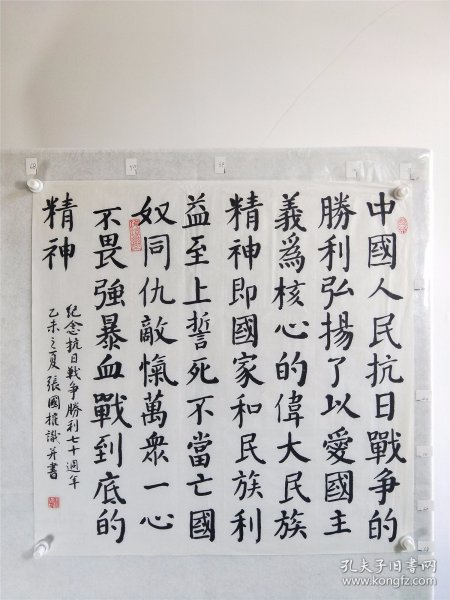 中國人民抗日戰争的
勝利弘揚了以愛國主
義爲核心的偉大民族
精神即國家和民族利
益至上誓死不當亡國
奴同仇敵愾萬衆一心
不畏強暴血戰到底的
精神
紀念抗日戰争勝利七十週年
乙未之夏張國權識并書
孔夫子旧书网
www.kongfz.com